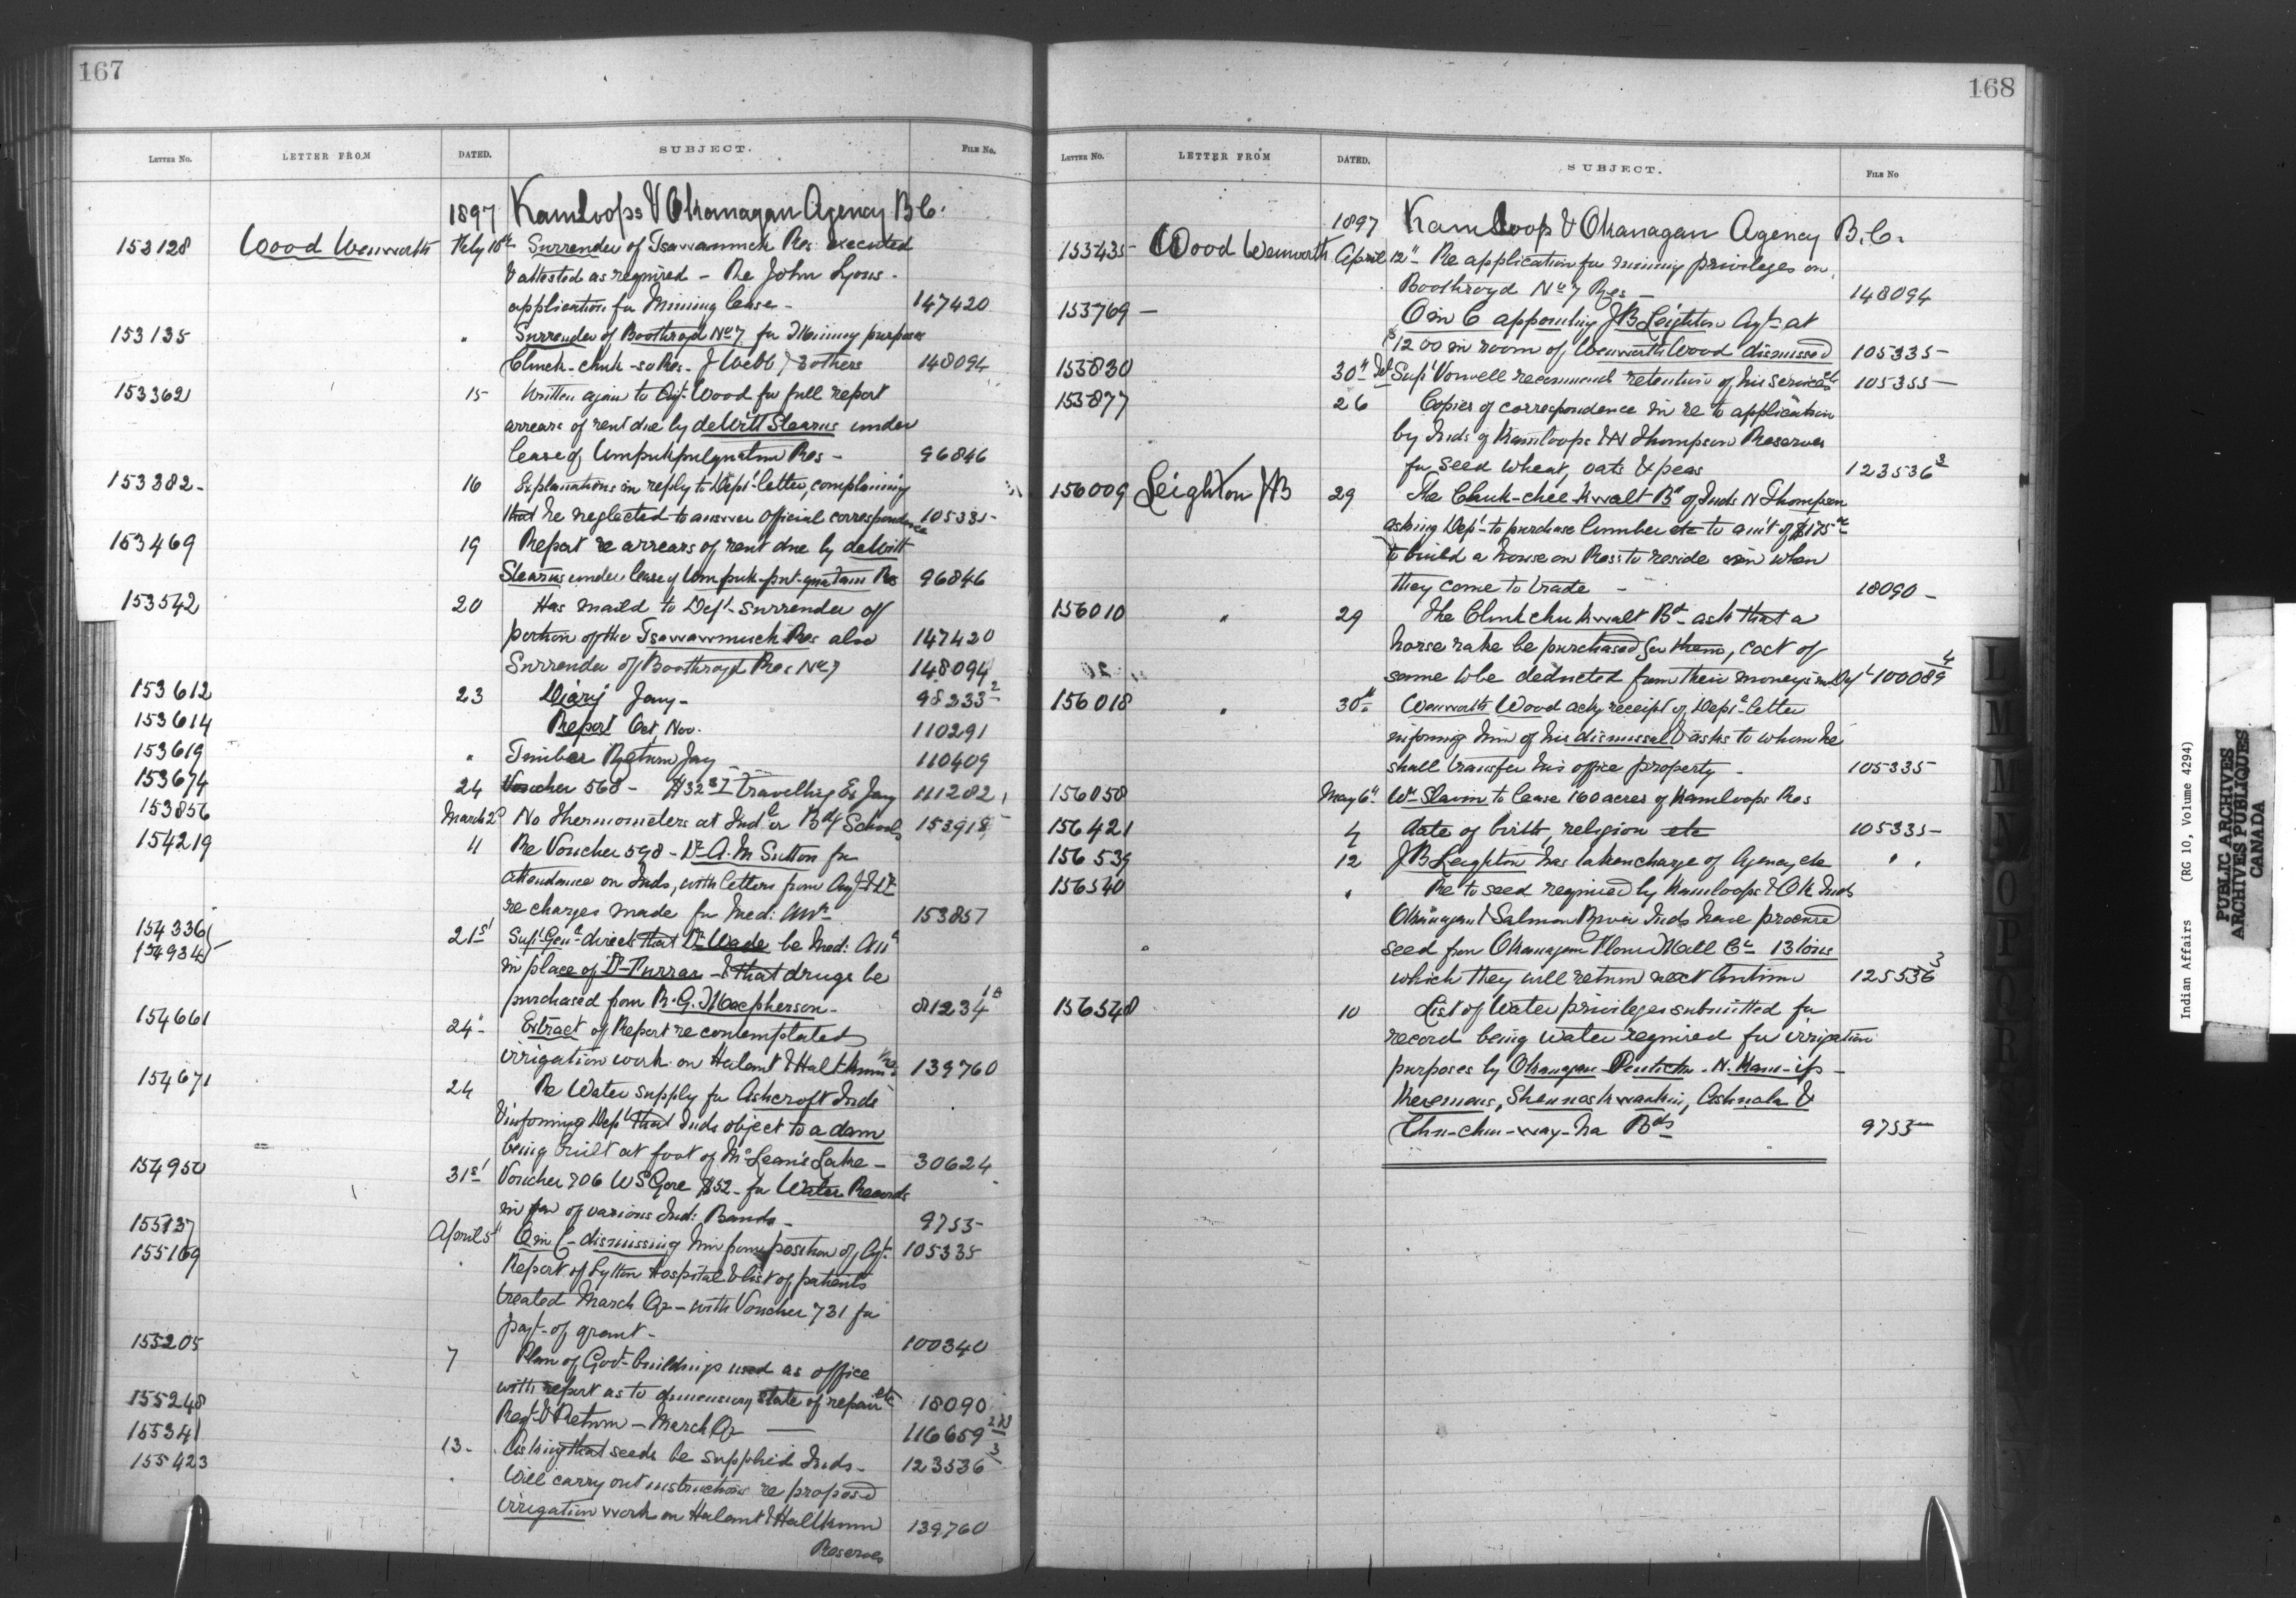 167
LETTER NO. LETTER FROM DATED. SUBJECT. FILE NO.
1897 Kamloops & Okanagan Agency B.C.
153128 Wood Wenworth Feby 16th Surrender of Tsawawmuck Res. executed
& attested as required - Re John Lyons
application for Mining lease - 147420
153135 " Surrender of Boothroyd No 7 for Mining purposes
Chuck-chuk- Res. J Webb & others 148094
153362 15 Written again to Agt. Wood for full report
arrears of rent due by deWitt Stearns under
lease of Res - 96846
153382 - 16 Explanations in reply to Dept. letter, complaining
that he neglected to answer official correspondence 105335
153469 19 Report re arrears of rent due by deWitt
Stearns under lease of Res 96846
153542 20 Has maild to Dept. surrender of
portion of the Tsawawmuck Res also 147420
Surrender of Boothroyd Res No 7 148094
153612 23 Diary Jany - 98233 2
153614 Report Oct, Nov. 110291
153619 " Timber Return Jany 110409
153674 24 Voucher 568 - Travelling Ex Jany 111282
153856 March 2d No Thermometers at Ind. or Bdg Schools 153918
154219 11 Re Voucher 598 - Dr A. M Sutton for
attendance on Inds, with letters from Agt & Dr
re charges made for Med: Attn 153857
154336
154934 21st Supt. Genl. directs that Dr Wade be Med: Att
in place of Dr Furrar - & that drugs be
purchased from R. G. Macpherson - 81234
154661 24" Extract of Report re contemplated
irrigation work on Halamt & Haltkum Res 139760
154671 24 Re Water supply for Ashcroft Inds
& informing Dept that Inds object to a dam
being built at foot of McLean's Lake - 30624
154950 31st Voucher 706 W S Gore $52 - for Water Records
in fav of various Ind: Bands - 9755
155137 April 5" O in C - dismissing him from position of Agt. 105335
155169 " Report of Lytton Hospital & list of patients
treated March Qr - with Voucher 731 for
payt. of grant - 100340
155205 7 Plan of Govt. buildings used as office
with report as to dimensions, state of repair etc 18090
155248 Regt. & Return - March Qr 116659
155341 13 - Asking that seeds be supplied Inds - 123536 3
155423 " Will carry out instructions re proposed
irrigation work on Halamt & Haltkum 139760
Reserves
168
LETTER NO. LETTER FROM DATED. SUBJECT. FILE NO
1897 Kamloop & Okanagan Agency B.C.
155435 Wood Wenworth April 12" Re application for mining privileges on
Boothroyd No 7 Res - 148094
155769 - O in C appointing J B Leighton Agt. at
$1200 in room of Wenworth Wood dismissed 105335
155830 30" Supt Vowell recommends retention of his services 105355
155877 26 Copies of correspondence in re to application
by Inds of Kamloops & N Thompson Reserves
for seed wheat, oats & peas 123536 3
156009 Leighton J B 29 The Chuk-chee-kwalt Bd of Inds N Thompson
asking Dept. to purchase lumber etc to am't of $175
to build a house on Res: to reside in when
they come to trade - 18090 -
156010 " 29 The Chuk chu kwalt Bd ask that a
horse rake be purchased for them, cost of
same to be deducted from their moneys in Dept 100089 4
156018 " 30th Wenworth Wood ackg receipt of Dept. letter
informing him of his dismissal & asks to whom he
shall transfer his office property - 105335
156058 May 6" Wm Slavin to lease 160 acres of Kamloops Res
156421 4 date of birth, religion etc 105335
156539 12 J B Leighton has taken charge of Agency etc " "
156540 " Re to seed required by Kamloops & OK Inds
Okanagan & Salmon River Inds have procured
seed from Okanagan Flour Mill Co 13 tons
which they will return next Autumn 125536 3
156548 10 List of Water privileges submitted for
record being water required for irrigation
purposes by Okanagan Penticton - N. Kam-ips -
Keremeos, Shennoskwankin, Ashnola &
Chu-chu-way-ha Bds 9755
Indian Affairs (RG 10, Volume 4294)
PUBLIC ARCHIVES
ARCHIVES PUBLIQUES
CANADA